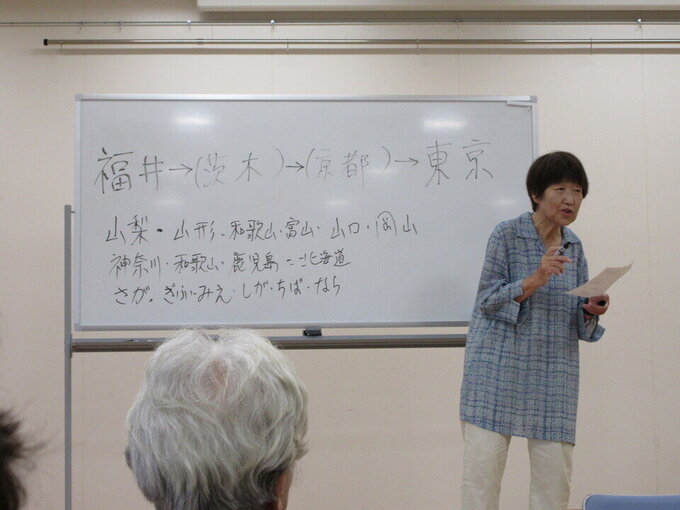 福井→(茨木)→(京都)→東京
山梨・山形・和歌山・富山・山口・岡山
神奈川・和歌山・鹿児島・北海道
さが・ぎふ・みえ・しが・ちば・なら